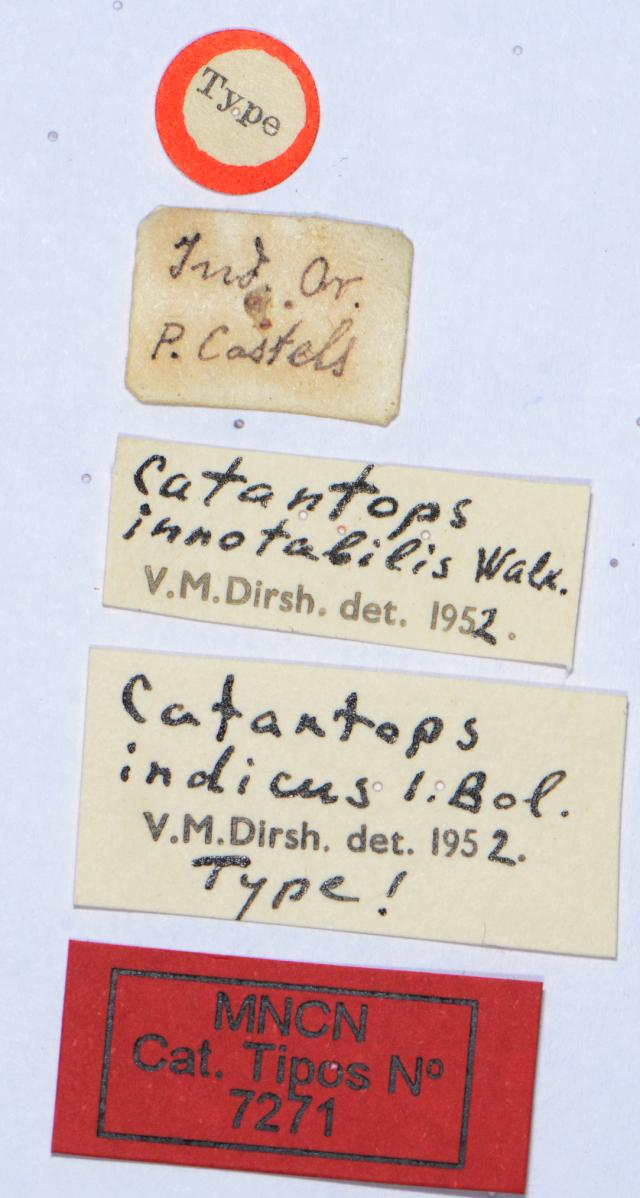 Type
Ind. Or.
P. Castels
Catantops
innotabilis Walk.
V.M.Dirsh. det. 1952.
Catantops
indicus I.Bol.
V.M.Dirsh. det. 1952.
Type!
MNCN
Cat. Tipos Nº
7271